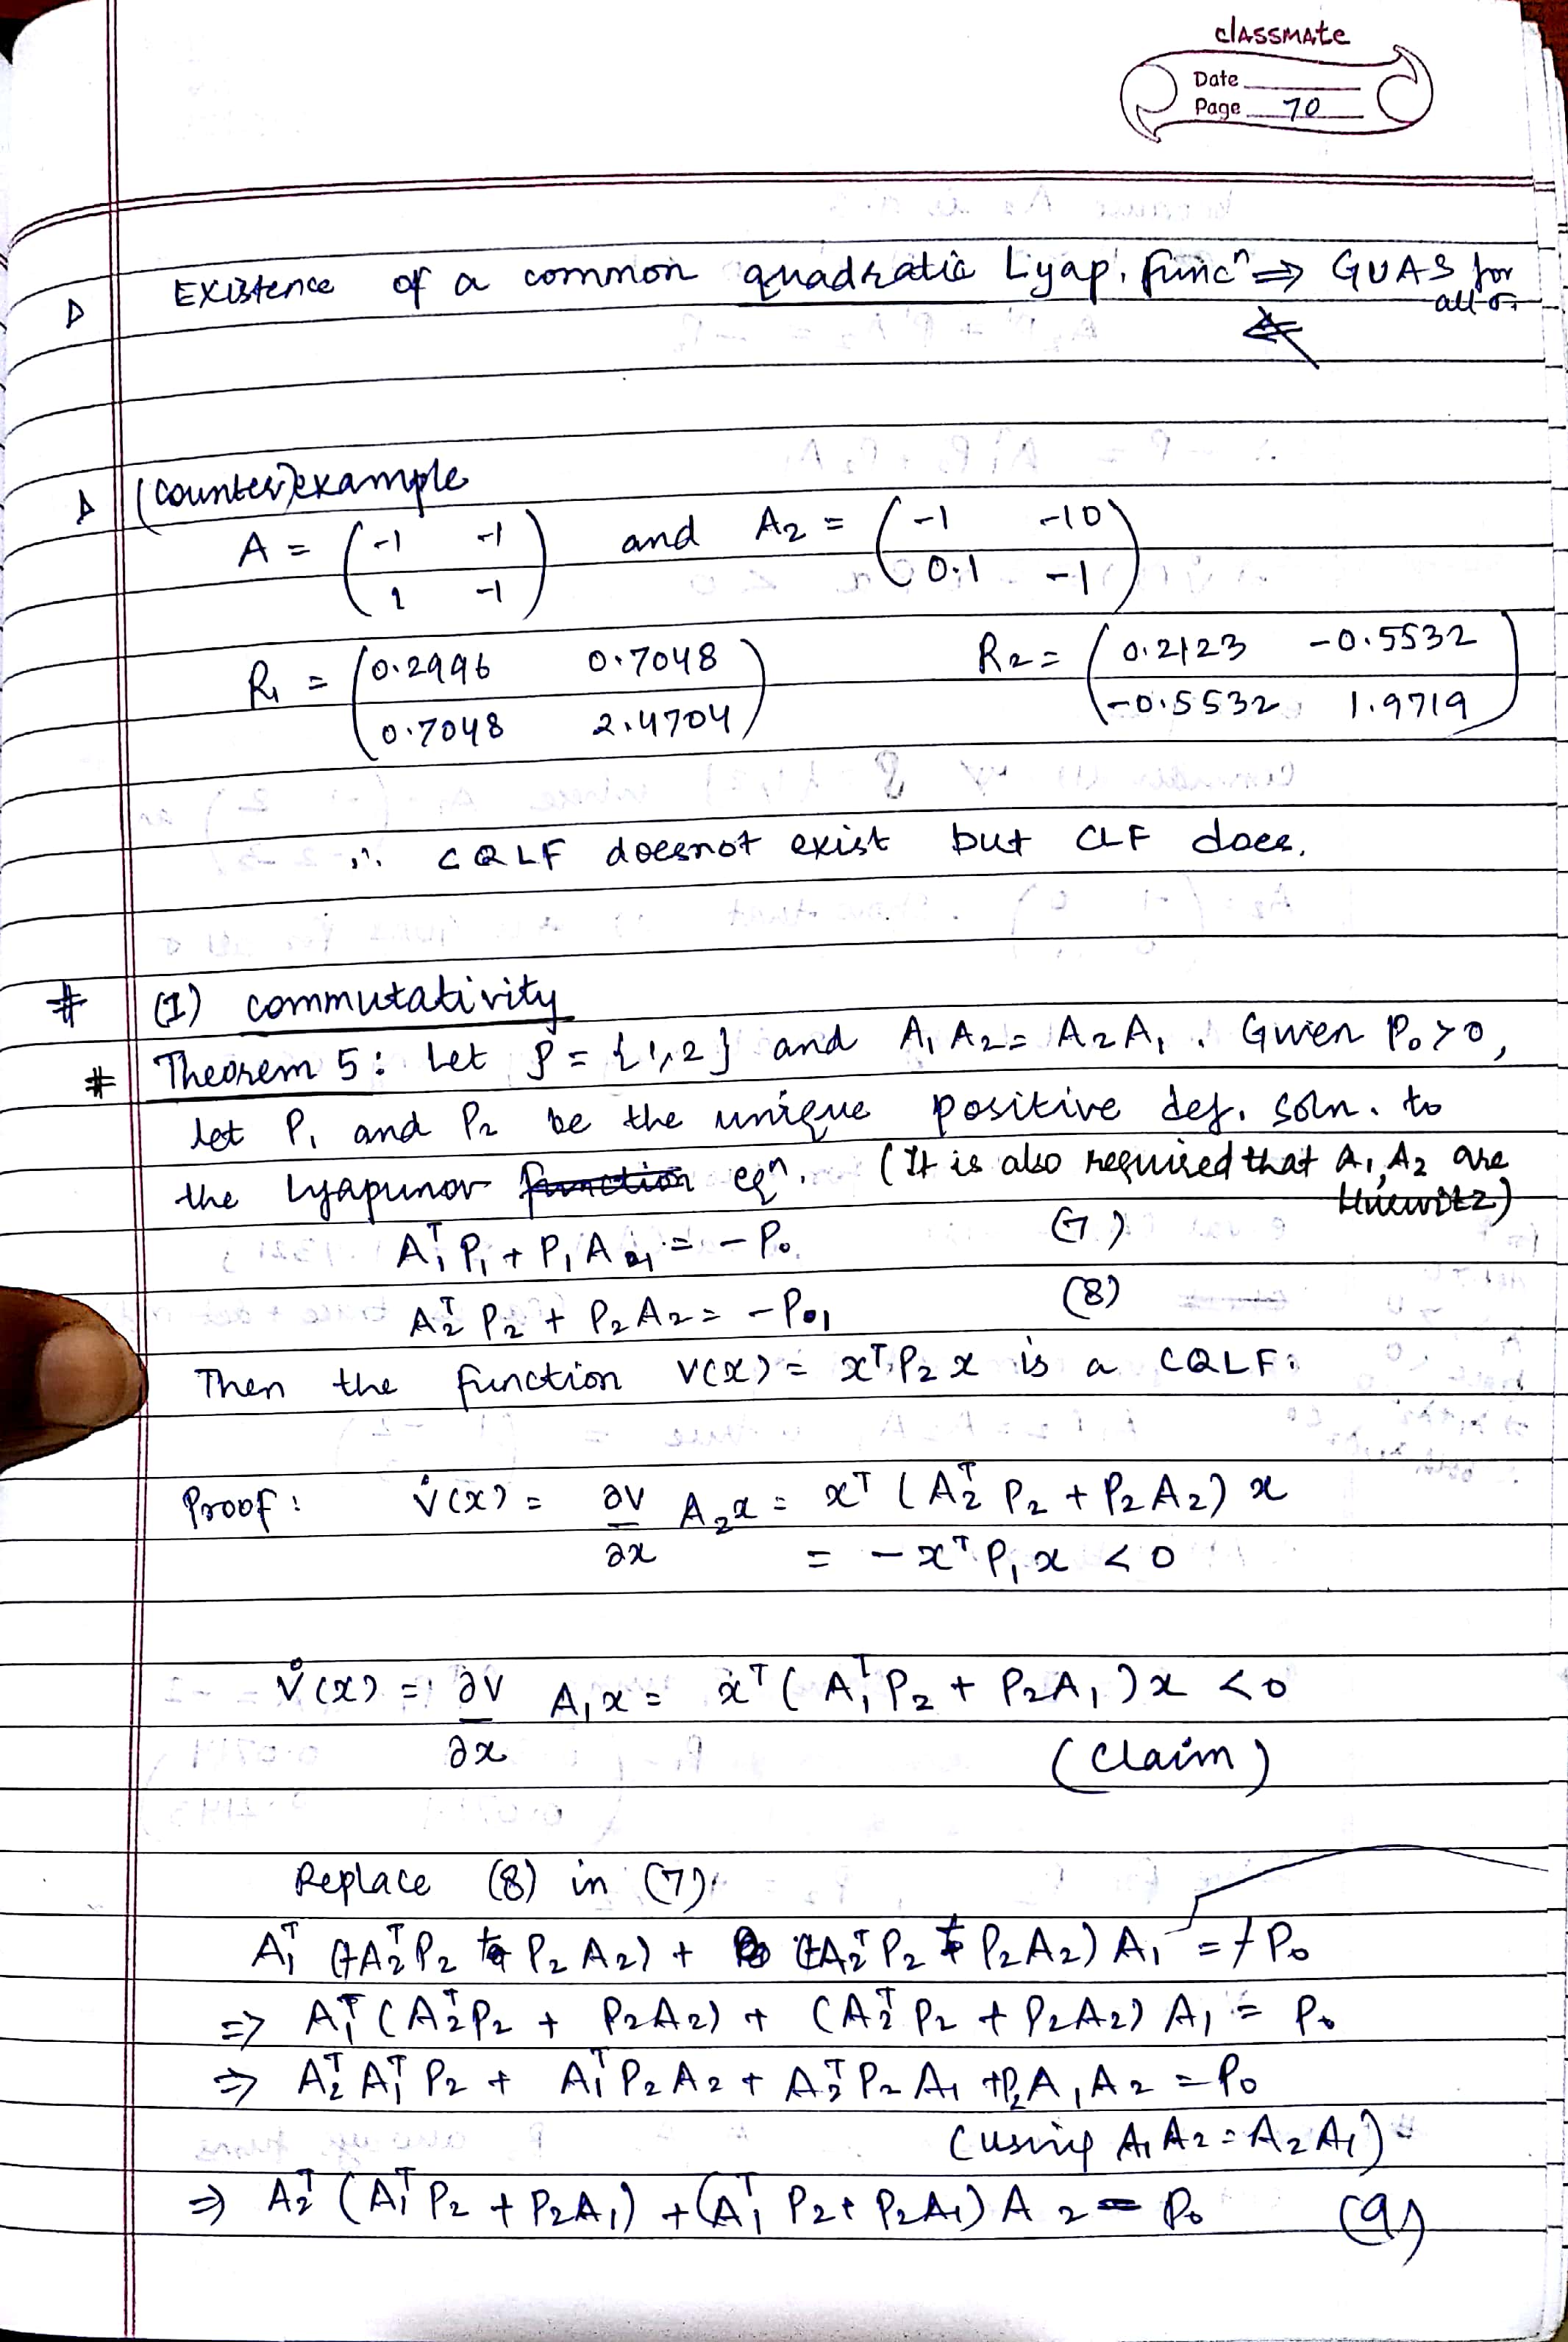 classmate
Date
Page 70
Existence of a common quadratic Lyap. funcⁿ ⇒ GUAS for all σ.
⇍
(Counter)example
A = (-1 -1; 1 -1) and A₂ = (-1 -10; 0.1 -1)
R₁ = (0.2996 0.7048; 0.7048 2.4704) R₂ = (0.2123 -0.5532; -0.5532 1.9719)
∴ CQLF doesnot exist but CLF does.
# (I) commutativity
# Theorem 5: Let P = {1,2} and A₁A₂ = A₂A₁. Given P₀>0,
let P₁ and P₂ be the unique positive def. soln. to
the Lyapunov function eqⁿ. (It is also required that A₁, A₂ are Hurwitz)
A₁ᵀP₁ + P₁A₁ = -P₀ (7)
A₂ᵀP₂ + P₂A₂ = -P₁ (8)
Then the function V(x) = xᵀP₂x is a CQLF.
Proof: V̇(x) = ∂V/∂x A₂x = xᵀ(A₂ᵀP₂ + P₂A₂)x
= -xᵀP₁x < 0
V̇(x) = ∂V/∂x A₁x = xᵀ(A₁ᵀP₂ + P₂A₁)x < 0
(Claim)
Replace (8) in (7).
A₁ᵀ(+A₂ᵀP₂ + P₂A₂) + (+A₂ᵀP₂ + P₂A₂)A₁ = +P₀
⇒ A₁ᵀ(A₂ᵀP₂ + P₂A₂) + (A₂ᵀP₂ + P₂A₂)A₁ = P₀
⇒ A₂ᵀA₁ᵀP₂ + A₁ᵀP₂A₂ + A₂ᵀP₂A₁ + P₂A₁A₂ = P₀
(using A₁A₂ = A₂A₁)
⇒ A₂ᵀ(A₁ᵀP₂ + P₂A₁) + (A₁ᵀP₂ + P₂A₁)A₂ = P₀ (9)